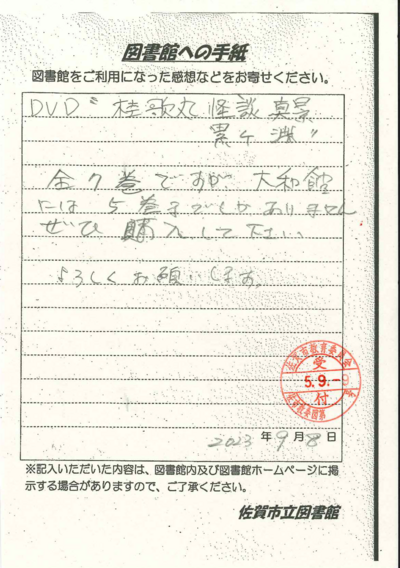 図書館への手紙
図書館をご利用になった感想などをお寄せください。
DVD〝桂歌丸 怪談 真景
累ヶ淵〟
全7巻ですが 大和館
には 5巻までしかありません
ぜひ 購入して下さい
よろしくお願いします。
受
5.9.-9
付
2023年9月8日
※記入いただいた内容は、図書館内及び図書館ホームページに掲
示する場合がありますので、ご了承ください。
佐賀市立図書館